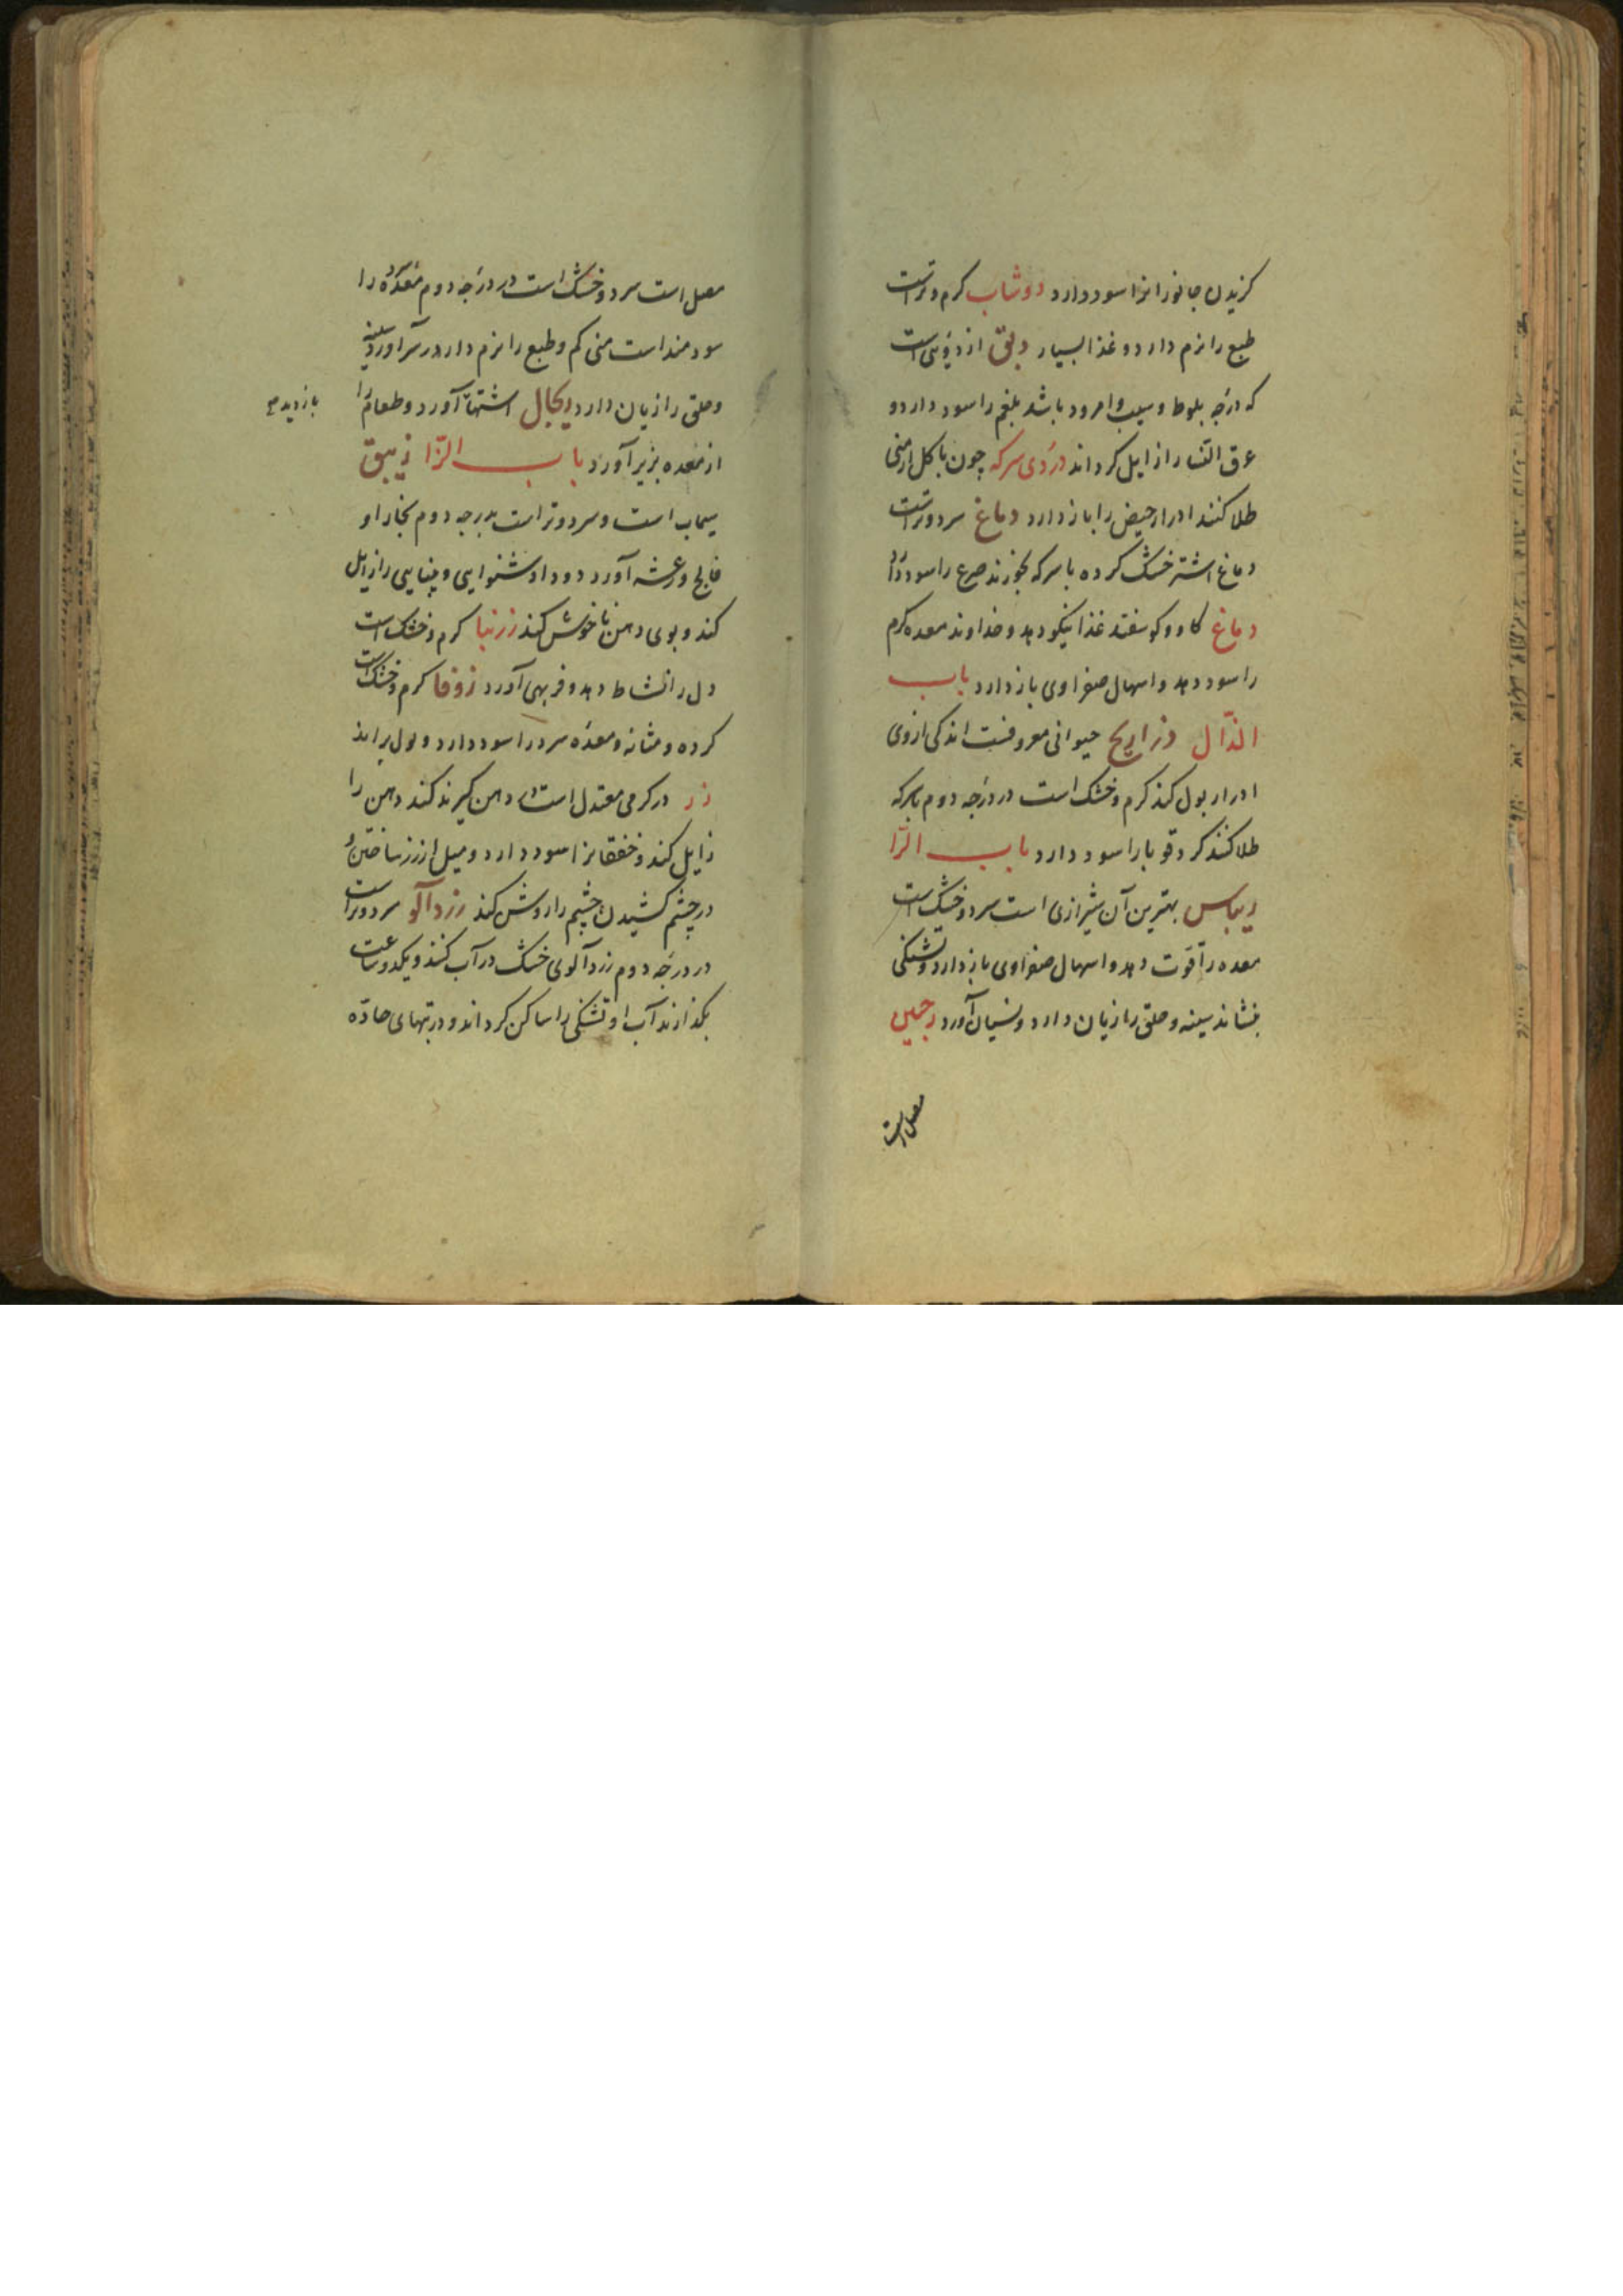 کزیدن جانورانرا سود دارد دوشاب کرم و ترست
طبع را نرم دارد و غذا بسیار دبق از دبوسی است
که درجه بلوط و سیب و امرود باشد بلغم را سود دارد و
عرق النسا را زایل کرداند دردی سرکه چون با کل ارمنی
طلا کنند ادرار حیض را باز دارد دماغ سرد و ترست
دماغ اشتر خشک کرده با سرکه بخورند صرع را سود دارد
دماغ کاو و کوسفند غذا نیکو دهد و خداوند معده کرم
را سود دهد و اسهال صفراوی باز دارد باب
الذّال ذراریح حیوانی معروفست اندکی از وی
ادرار بول کند کرم و خشک است در درجه دوم با سرکه
طلا کنند کر و قوبا را سود دارد باب الرّا
ریباس بهترین آن شیرازی است سرد و خشک است
معده را قوّت دهد و اسهال صفراوی باز دارد و تشنکی
بنشاند سینه و حلق را زیان دارد و نسیان آورد رخبین
مصل است
مصل است سرد و خشک است در درجه دوم معده کرم را
سودمند است منی کم و طبع را نرم دارد درد سر آورد و سینه
و حلق را زیان دارد ریجال اشتها آورد و طعام را
از معده بزیر آورد باب الزّا زیبق
سیماب است و سرد و تر است بدرجه دوم بخار او
فالج و رعشه آورد و دود او شنوایی و بینایی را زایل
کند و بوی دهن ناخوش کند زرنبا کرم و خشک است
دل را نشاط دهد و فربهی آورد زوفا کرم و خشک است
کرده و مثانه و معده سرد را سود دارد و بول براند
زر در کرمی معتدل است در دهن کیرند کند دهن را
زایل کند و خفقانرا سود دارد و میل از زر ساختن و
در چشم کشیدن چشم را روشن کند زردآلو سرد و تر است
در درجه دوم زردآلوی خشک در آب کنند و یکدو ساعت
بکذارند آب او تشنکی را ساکن کرداند و در تبهای حادّه
بازدید